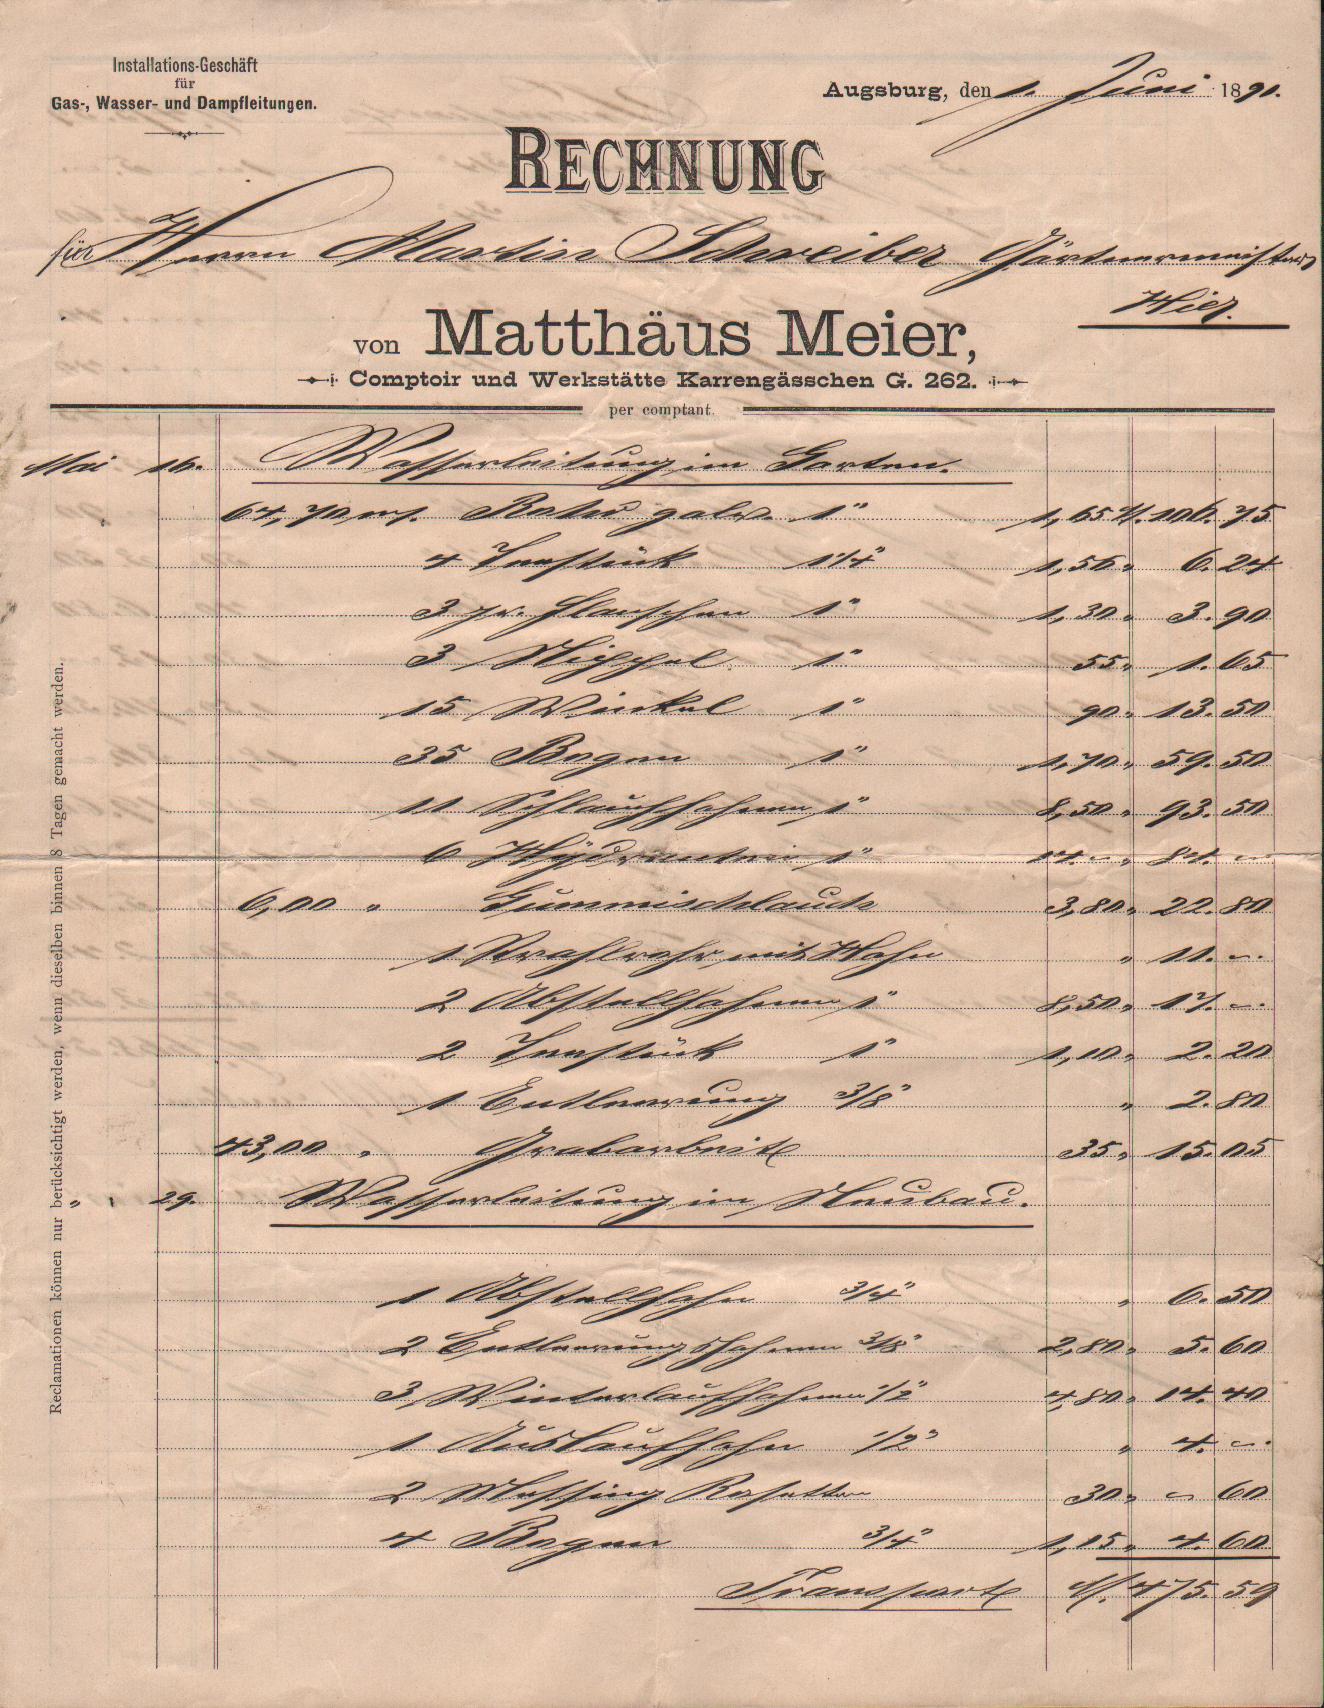 Installations-Geschäft
für
Gas-, Wasser- und Dampfleitungen.
Augsburg, den 1. Juni 1891.
RECHNUNG
für Herrn Martin Schreiber Gärtnermeister
Hier.
von Matthäus Meier,
Comptoir und Werkstätte Karrengässchen G. 262.
per comptant.
Mai 16. Wasserleitung im Garten.
64,70 m. Rohr galv. 1" 1,65 M. 106.75
4 Teestück 1 1/4" 1,56 " 6.24
3 pr. Flanschen 1" 1,30 " 3.90
3 Nippel 1" 55 " 1.65
15 Winkel 1" 90 " 13.50
35 Bogen 1" 1,70 " 59.50
11 Schlauchhahnen 1" 8,50 " 93.50
6 Hydranten 1" 14.— " 84.—
6,00 " Gummischlauch 3,80 " 22.80
1 Strahlrohr mit Hahn " 11.—
2 Abstellhahnen 1" 8,50 " 17.—
2 Teestück 1" 1,10 " 2.20
1 Entleerung 3/8" " 2.80
43,00 " Grabarbeit 35 " 15.05
" 29. Wasserleitung im Neubau.
1 Abstellhahn 3/4" " 6.50
2 Entleerungshahnen 3/8" 2,80 " 5.60
3 Winterlaufhahnen 1/2" 4,80 " 14.40
1 Auslaufhahn 1/2" " 4.—
2 Messing Rosetten 30 " — 60
4 Bogen 3/4" 1,15 " 4.60
Transport M. 475.59
Reclamationen können nur berücksichtigt werden, wenn dieselben binnen 8 Tagen gemacht werden.